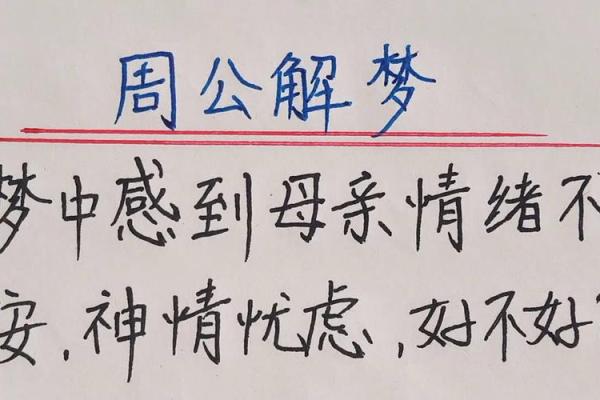 周公解梦
梦中感到母亲情绪不
安,神情忧虑,好不好?